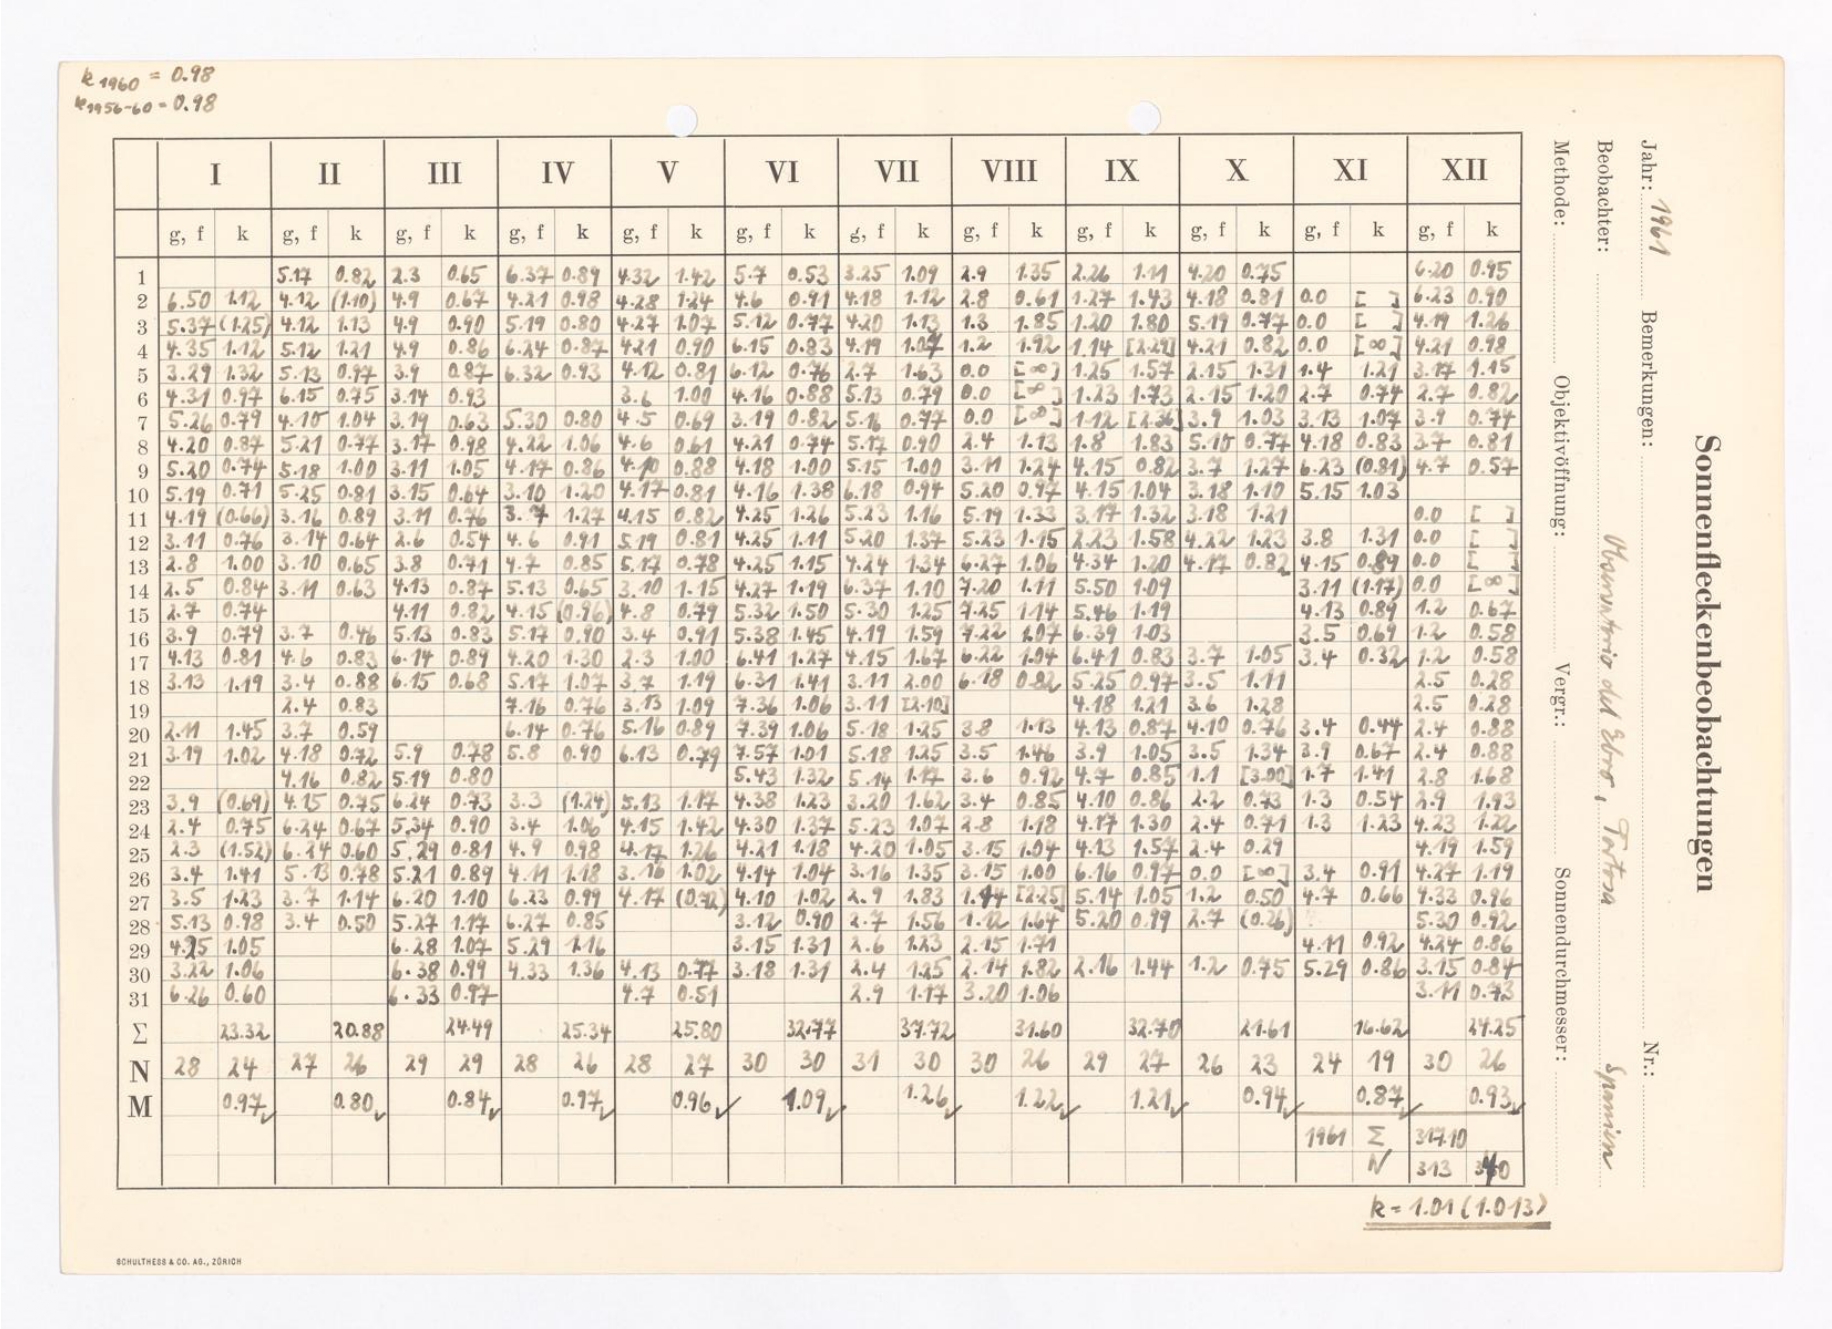 k1960 = 0.98
k1956-60 = 0.98
Sonnenfleckenbeobachtungen
Jahr: 1961 Bemerkungen: Nr.:
Beobachter: Observatorio del Ebro, Tortosa Spanien
Methode: Objektivöffnung: Vergr.: Sonnendurchmesser:
I II III IV V VI VII VIII IX X XI XII
g, f k g, f k g, f k g, f k g, f k g, f k g, f k g, f k g, f k g, f k g, f k g, f k
1 5.17 0.82 2.3 0.65 6.37 0.89 4.32 1.42 5.7 0.53 3.25 1.09 2.9 1.35 2.26 1.11 4.20 0.75 6.20 0.95
2 6.50 1.12 4.12 (1.10) 4.9 0.67 4.21 0.98 4.28 1.24 4.6 0.91 4.18 1.12 2.8 0.61 1.27 1.43 4.18 0.81 0.0 [ ] 6.23 0.90
3 5.37 (1.25) 4.12 1.13 4.9 0.90 5.19 0.80 4.27 1.07 5.12 0.77 4.20 1.13 1.3 1.85 1.20 1.80 5.19 0.77 0.0 [ ] 4.19 1.26
4 4.35 1.12 5.12 1.21 4.9 0.86 6.24 0.87 4.21 0.90 6.15 0.83 4.19 1.07 1.2 1.92 1.14 [2.29] 4.21 0.82 0.0 [∞] 4.21 0.98
5 3.29 1.32 5.13 0.97 3.9 0.87 6.32 0.93 4.12 0.81 6.12 0.76 2.7 1.63 0.0 [∞] 1.25 1.57 2.15 1.31 1.4 1.21 3.17 1.15
6 4.31 0.97 6.15 0.75 3.14 0.93 3.6 1.00 4.16 0.88 5.13 0.79 0.0 [∞] 1.23 1.73 2.15 1.20 2.7 0.74 2.7 0.82
7 5.26 0.79 4.10 1.04 3.19 0.63 5.30 0.80 4.5 0.69 3.19 0.82 5.16 0.77 0.0 [∞] 1.12 [2.36] 3.9 1.03 3.13 1.07 3.9 0.74
8 4.20 0.87 5.21 0.77 3.17 0.98 4.22 1.06 4.6 0.61 4.21 0.74 5.17 0.90 2.4 1.13 1.8 1.83 5.10 0.77 4.18 0.83 3.7 0.81
9 5.20 0.74 5.18 1.00 3.11 1.05 4.17 0.86 4.10 0.88 4.18 1.00 5.15 1.00 3.11 1.24 4.15 0.82 3.7 1.27 6.23 (0.81) 4.7 0.57
10 5.19 0.71 5.25 0.81 3.15 0.64 3.10 1.20 4.17 0.81 4.16 1.38 6.18 0.94 5.20 0.97 4.15 1.04 3.18 1.10 5.15 1.03
11 4.19 (0.66) 3.16 0.89 3.11 0.76 3.7 1.27 4.15 0.82 4.25 1.26 5.23 1.16 5.19 1.33 3.17 1.32 3.18 1.21 0.0 [ ]
12 3.11 0.76 3.14 0.64 2.6 0.54 4.6 0.91 5.19 0.81 4.25 1.11 5.20 1.37 5.23 1.15 2.23 1.58 4.22 1.23 3.8 1.31 0.0 [ ]
13 2.8 1.00 3.10 0.65 3.8 0.71 4.7 0.85 5.17 0.78 4.25 1.15 4.24 1.34 6.27 1.06 4.34 1.20 4.17 0.82 4.15 0.89 0.0 [ ]
14 2.5 0.84 3.11 0.63 4.13 0.87 5.13 0.65 3.10 1.15 4.27 1.19 6.37 1.10 7.20 1.11 5.50 1.09 3.11 (1.17) 0.0 [∞]
15 2.7 0.74 4.11 0.82 4.15 (0.96) 4.8 0.79 5.32 1.50 5.30 1.25 7.25 1.14 5.46 1.19 4.13 0.89 1.2 0.67
16 3.9 0.79 3.7 0.46 5.13 0.83 5.17 0.90 3.4 0.91 5.38 1.45 4.19 1.59 7.22 1.07 6.39 1.03 3.5 0.69 1.2 0.58
17 4.13 0.81 4.6 0.83 6.14 0.89 4.20 1.30 2.3 1.00 6.41 1.27 4.15 1.67 6.22 1.04 6.41 0.83 3.7 1.05 3.4 0.32 1.2 0.58
18 3.13 1.19 3.4 0.88 6.15 0.68 5.17 1.07 3.7 1.19 6.31 1.41 3.11 2.00 6.18 0.82 5.25 0.97 3.5 1.11 2.5 0.28
19 2.4 0.83 7.16 0.76 3.13 1.09 7.36 1.06 3.11 [2.10] 4.18 1.21 3.6 1.28 2.5 0.28
20 2.11 1.45 3.7 0.59 6.14 0.76 5.16 0.89 7.39 1.06 5.18 1.25 3.8 1.13 4.13 0.87 4.10 0.76 3.4 0.44 2.4 0.88
21 3.19 1.02 4.18 0.72 5.9 0.78 5.8 0.90 6.13 0.79 7.57 1.01 5.18 1.25 3.5 1.46 3.9 1.05 3.5 1.34 3.9 0.67 2.4 0.88
22 4.16 0.82 5.19 0.80 5.43 1.32 5.14 1.17 3.6 0.92 4.7 0.85 1.1 [3.00] 1.7 1.41 2.8 1.68
23 3.9 (0.69) 4.15 0.75 6.24 0.73 3.3 (1.24) 5.13 1.17 4.38 1.23 3.20 1.62 3.4 0.85 4.10 0.86 2.2 0.73 1.3 0.54 2.9 1.93
24 2.4 0.75 6.24 0.67 5.34 0.90 3.4 1.06 4.15 1.42 4.30 1.37 5.23 1.07 2.8 1.18 4.17 1.30 2.4 0.71 1.3 1.23 4.23 1.22
25 2.3 (1.52) 6.24 0.60 5.29 0.81 4.9 0.98 4.17 1.26 4.21 1.18 4.20 1.05 3.15 1.04 4.13 1.57 2.4 0.29 4.19 1.59
26 3.4 1.41 5.13 0.78 5.21 0.89 4.11 1.18 3.16 1.02 4.14 1.04 3.16 1.35 3.15 1.00 6.16 0.97 0.0 [∞] 3.4 0.91 4.27 1.19
27 3.5 1.23 3.7 1.14 6.20 1.10 6.23 0.99 4.17 (0.72) 4.10 1.02 2.9 1.83 1.14 [2.25] 5.14 1.05 1.2 0.50 4.7 0.66 4.33 0.96
28 5.13 0.98 3.4 0.50 5.27 1.17 6.27 0.85 3.12 0.90 2.7 1.56 1.12 1.64 5.20 0.99 2.7 (0.26) 5.30 0.92
29 4.25 1.05 6.28 1.07 5.29 1.16 3.15 1.31 2.6 1.23 2.15 1.71 4.11 0.92 4.24 0.86
30 3.22 1.06 6.38 0.99 4.33 1.36 4.13 0.77 3.18 1.31 2.4 1.25 2.14 1.82 2.16 1.44 1.2 0.75 5.29 0.86 3.15 0.84
31 6.26 0.60 6.33 0.97 4.7 0.51 2.9 1.17 3.20 1.06 3.11 0.73
Σ 23.32 20.88 24.49 25.34 25.80 32.77 37.72 31.60 32.70 21.61 16.62 24.25
N 28 24 27 26 29 29 28 26 28 27 30 30 31 30 30 26 29 27 26 23 24 19 30 26
M 0.97 0.80 0.84 0.97 0.96 1.09 1.26 1.22 1.21 0.94 0.87 0.93
1961 Σ 317.10
N 313 340
k = 1.01 (1.013)
SCHULTHESS & CO. AG., ZÜRICH